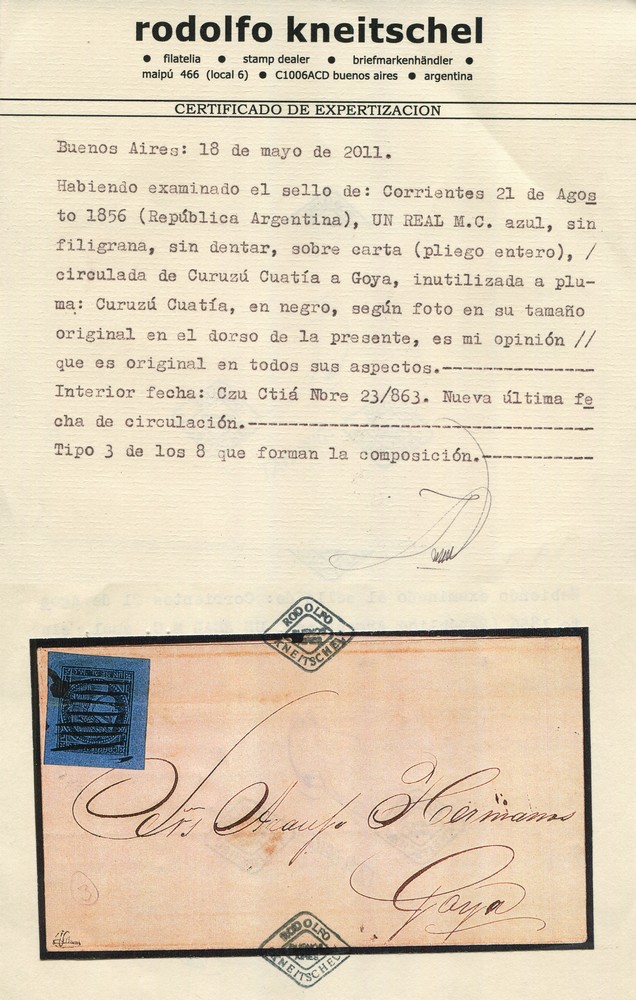 rodolfo kneitschel
● filatelia ● stamp dealer ● briefmarkenhändler ●
maipú 466 (local 6) ● C1006ACD buenos aires ● argentina
CERTIFICADO DE EXPERTIZACION
Buenos Aires: 18 de mayo de 2011.
Habiendo examinado el sello de: Corrientes 21 de Agos
to 1856 (República Argentina), UN REAL M.C. azul, sin
filigrana, sin dentar, sobre carta (pliego entero), /
circulada de Curuzú Cuatía a Goya, inutilizada a plu-
ma: Curuzú Cuatía, en negro, según foto en su tamaño
original en el dorso de la presente, es mi opinión //
que es original en todos sus aspectos.---------------
Interior fecha: Czu Ctiá Nbre 23/863. Nueva última fe
cha de circulación.----------------------------------
Tipo 3 de los 8 que forman la composición.-----------
RODOLFO
BUENOS
AIRES
KNEITSCHEL
Sñrs Araujo Hermanos
Goya
3
RODOLFO
BUENOS
AIRES
KNEITSCHEL